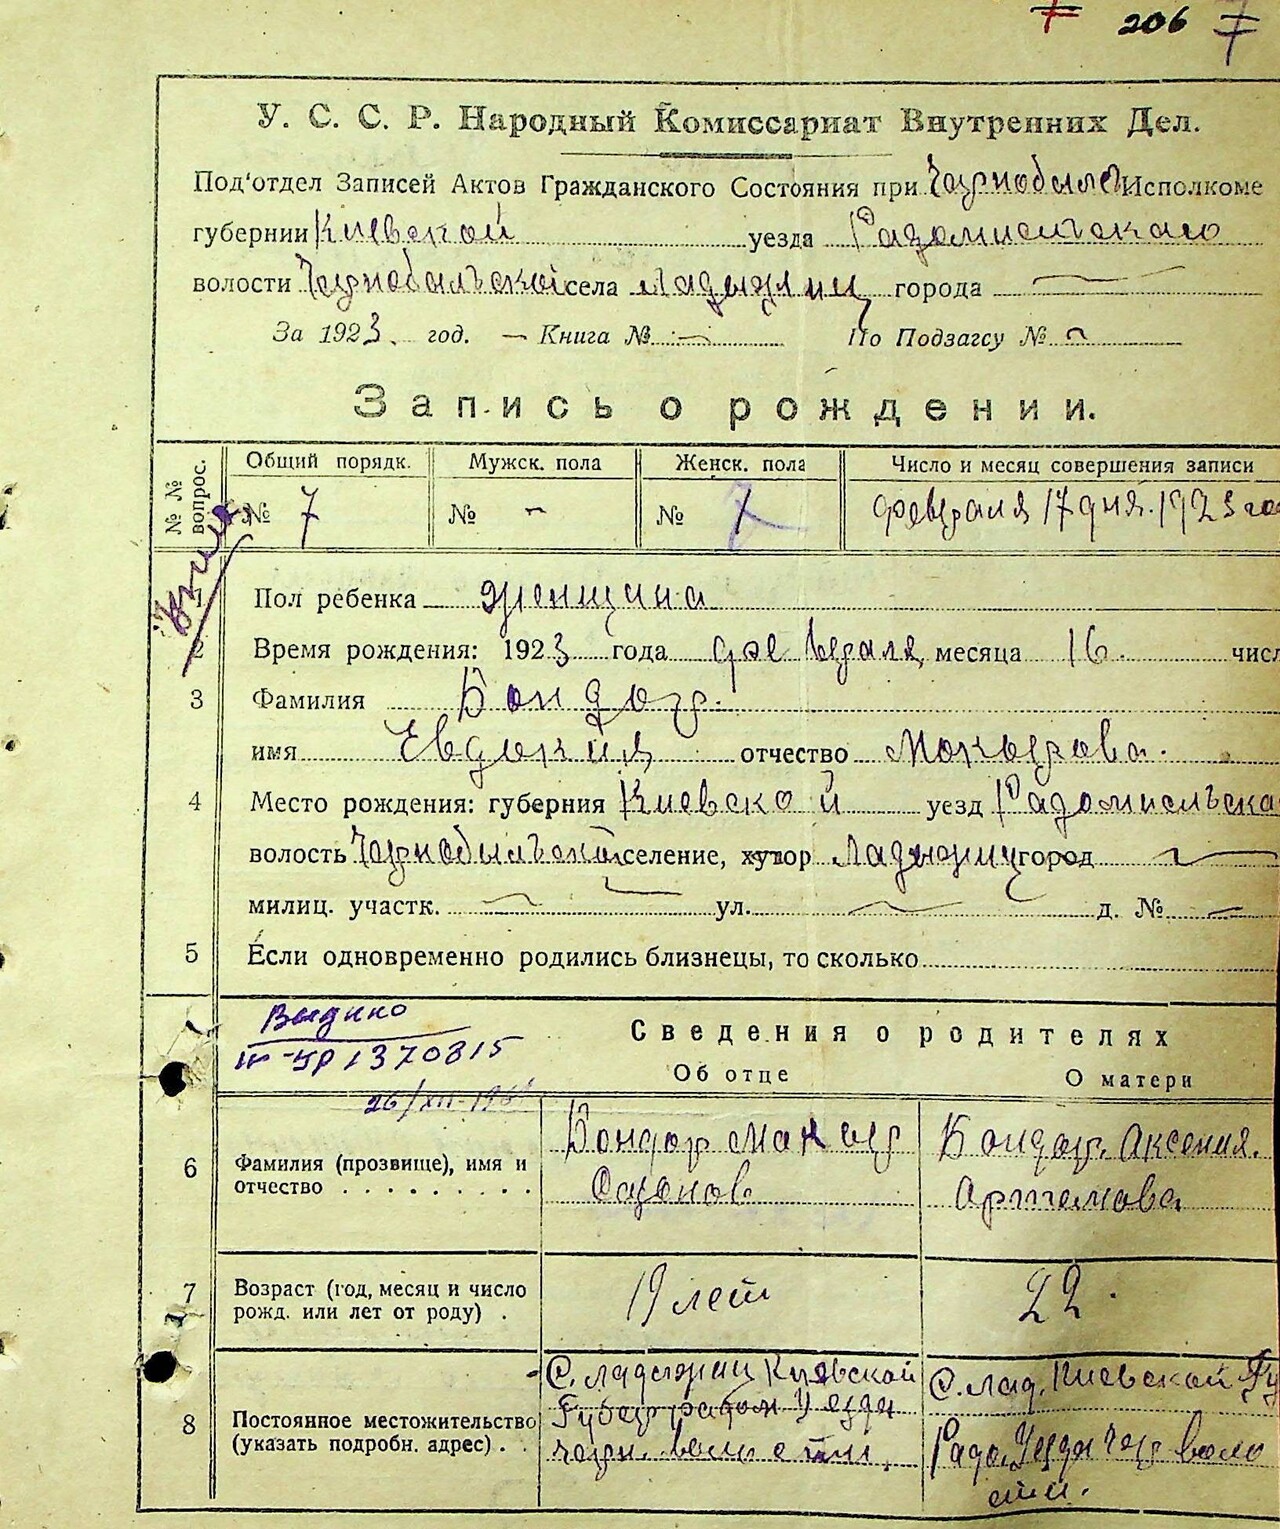 7 206 7
У. С. С. Р. Народный Комиссариат Внутренних Дел.
Под'отдел Записей Актов Гражданского Состояния при Исполкоме
губернии Киевской уезда Радомисльскаго
волости Чернобыльской села Ладыжич города —
За 1923. год. — Книга № — По Подзагсу № —
Запись о рождении.
№ № вопрос. Общий порядк. Мужск. пола Женск. пола Число и месяц совершения записи
№ 7 № - № 7 февраля 17 дня. 1923 го
1 Пол ребенка женщина
2 Время рождения: 1923 года февраля месяца 16. числ
3 Фамилия Бондар.
имя Евдокия отчество Мокырова.
4 Место рождения: губерния Киевской уезд Радомисльска
волость Чернобыльской селение, хутор Ладыжич город —
милиц. участк. — ул. — д. № —
5 Если одновременно родились близнецы, то сколько
Выдано
1370815
26/XII-196
Сведения о родителях
Об отце О матери
6 Фамилия (прозвище), имя и отчество . . . . . . . . . .
Бондар Макыр
Сазонов
Бондар. Аксения.
Артемова
7 Возраст (год, месяц и число рожд. или лет от роду) .
19 лет 22.
8 Постоянное местожительство (указать подробн. адрес) . .
С. Ладыжич Киевской
Губер радом Уезда
черн. волости.
С. Лад. Киевской Гу
Радо. Уезда Чер воло
сти.